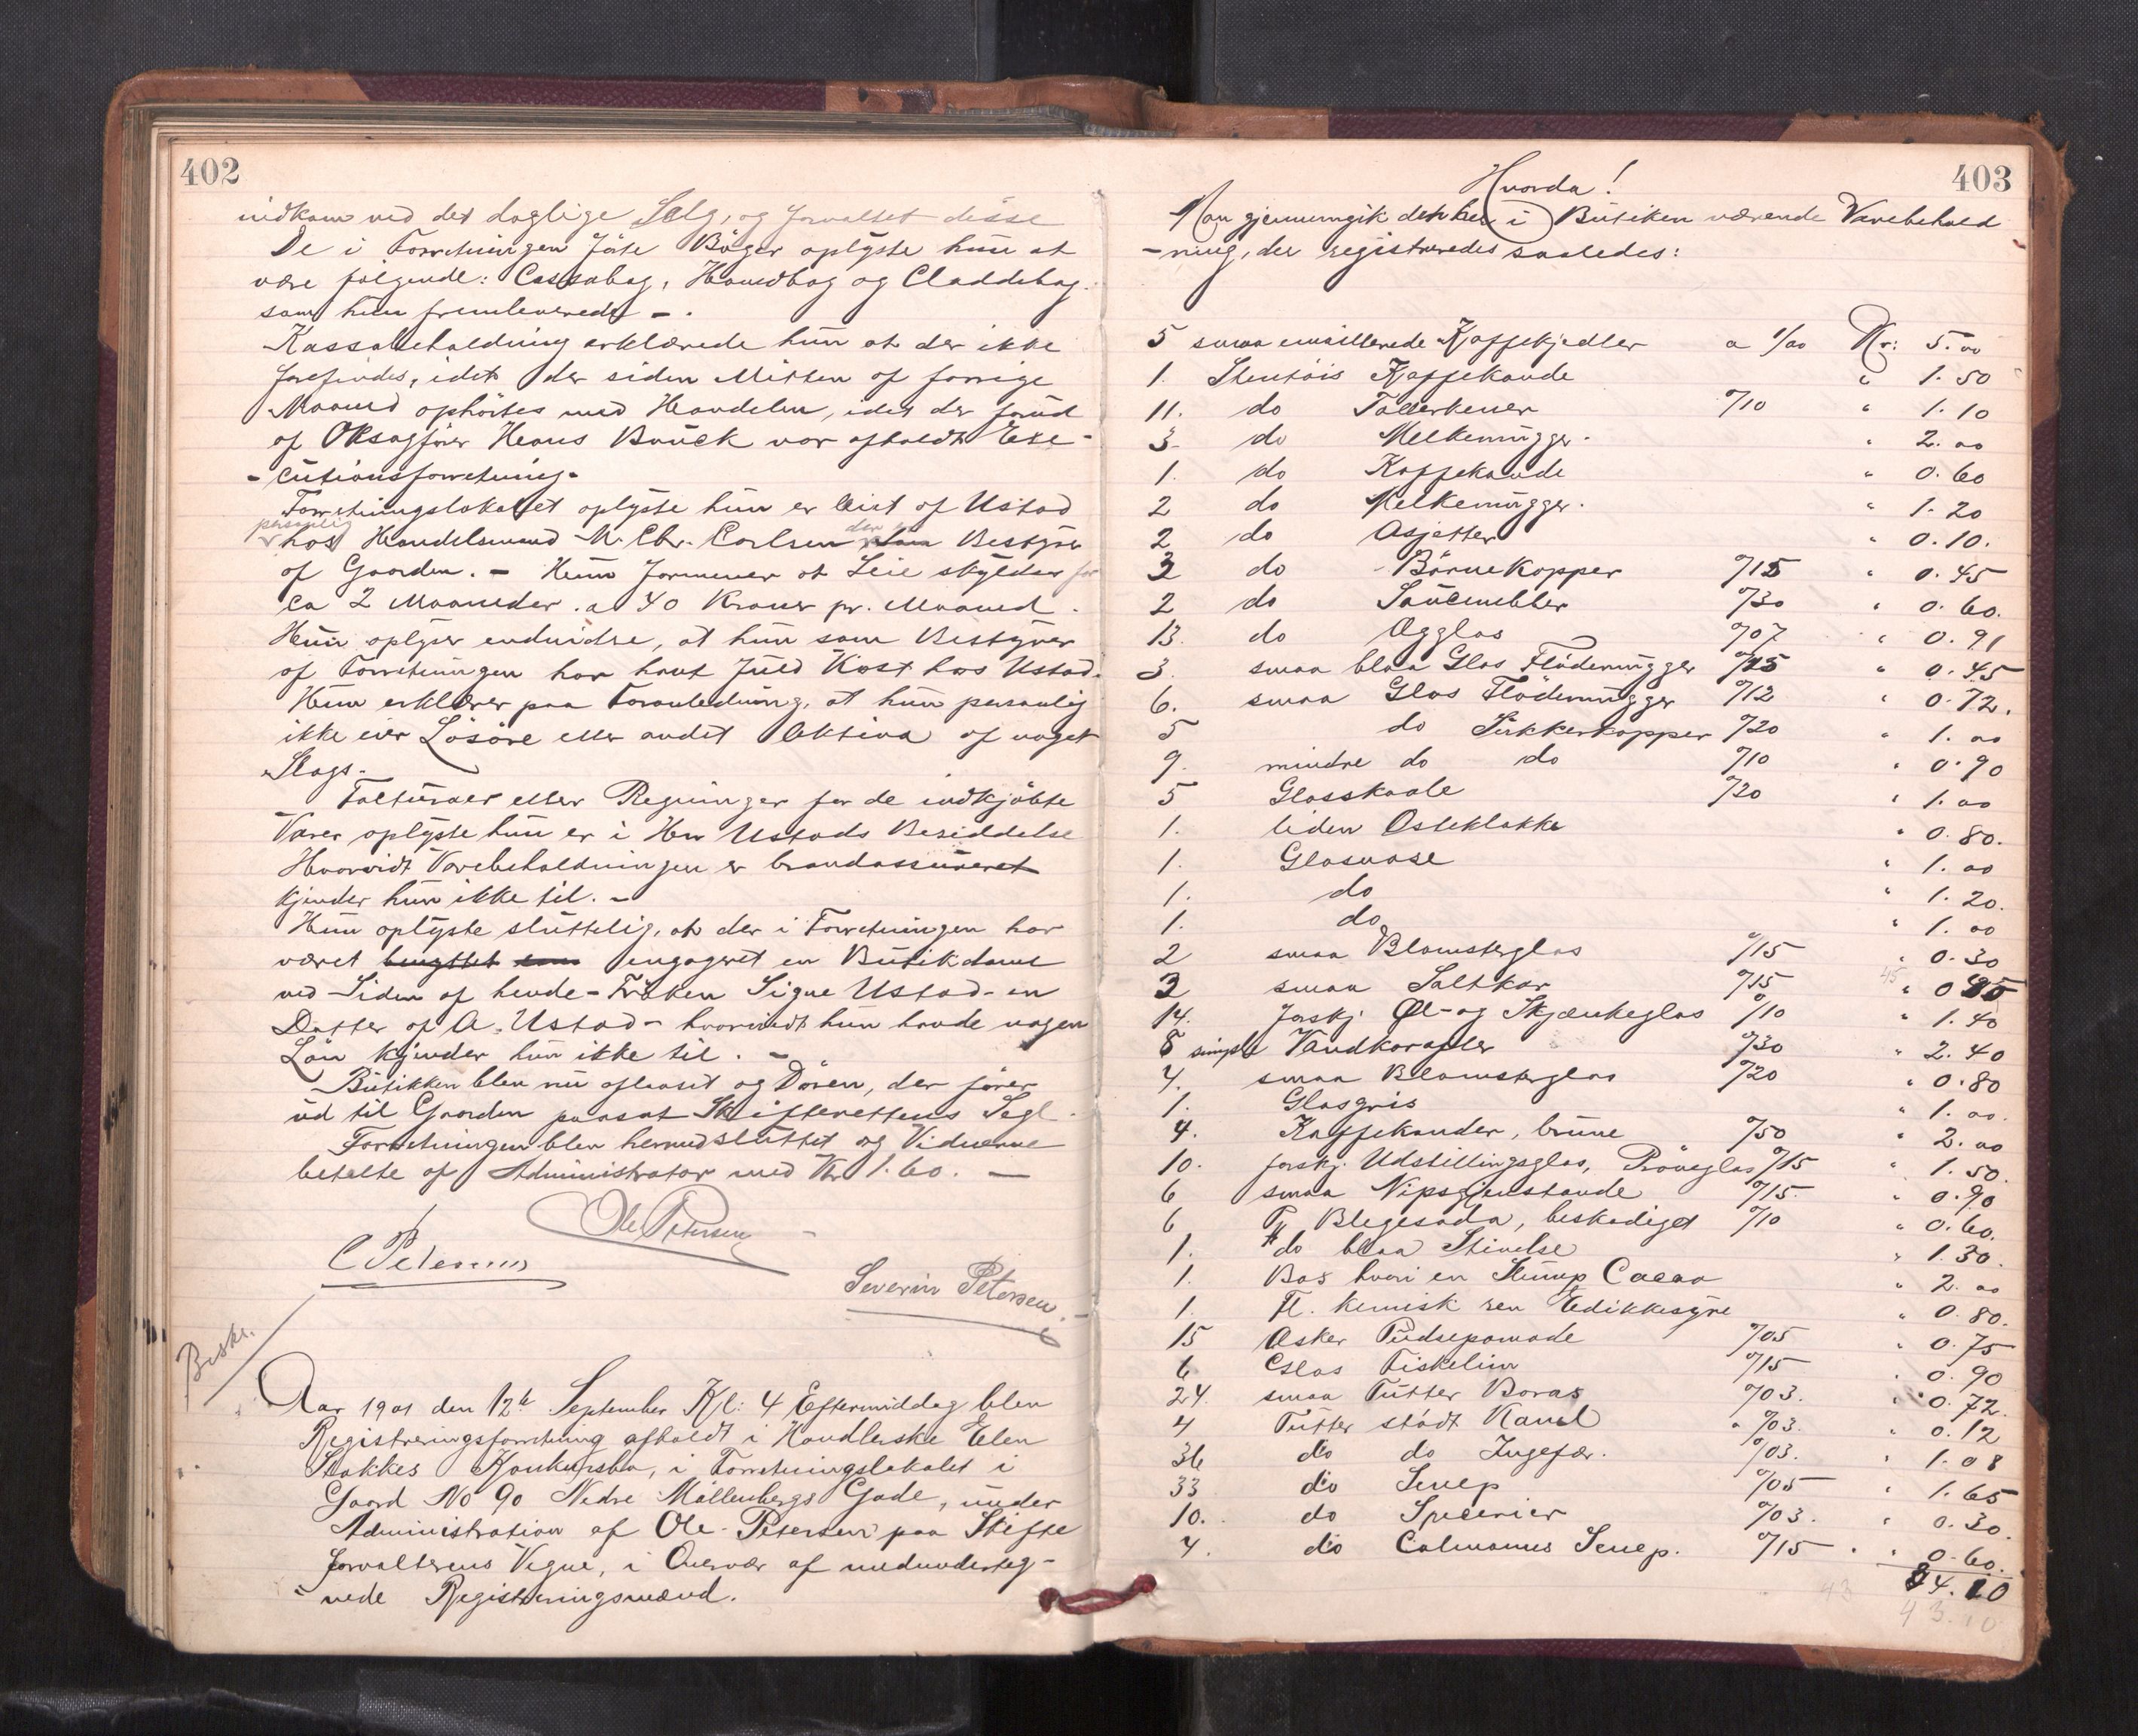 402
indkom ved det daglige Salg, og forvaltet disse
De i Forretningen førte Bøger oplyste hun at
være følgende: Cassabog, Hovedbog og Claddebog.
som hun fremleverede -.
Kassabeholdning erklærede hun at der ikke
forefindes, idet der siden Midten af forrige
Maaned ophørtes med Handelen, idet der
af ORsagfører Hans Brück var afholdt Exe-
-cutionsforretning.
Forretningslokalet oplyste hun er leiet af Ustad
personlig
hos Handelsmand M. Chr. Carlsen der er Bestyrer
af Gaarden. - Hun formener at Leie skyldes for
ca 2 Maaneder a 40 Kroner pr. Maaned.
Hun oplyser endvidre, at hun som Bestyrer
af Forretningen har havt fuld Kost hos Ustad.
Hun erklærer paa Foranledning, at hun personlig
ikke eier Løsøre eller andet Aktiva af noget
Slags.
Fakturaer eller Regninger for de indkjøbte
Varer oplyste hun er i Herr Ustads Besiddelse
Hvorvidt Varebeholdningen er brandassureret
kjender hun ikke til. -
Hun oplyste sluttelig, at der i Forretningen har
været benyttet som engageret en Butikdame
ved Siden af hende - Frøken Signe Ustad - en
Datter af A. Ustad - hvorvidt hun havde nogen
Løn kjender hun ikke til. -
Butikken blev nu aflaaset og Døren, der fører
ud til Gaarden paasat Skifterettens Segl.
Forretningen blev hermed sluttet og Vidnerne
betalte af Administrator med Kr 1.60. -
Ole Petersen
C Petersen
Severin Petersen
Beskr.
Aar 1901 den 12te September Kl: 4 Eftermiddag blev
Registreringsforretning afholdt i Handlerske Elen
Stokkes Konkursbo, i Forretningslokalet i
Gaard No 90 Nedre Møllenbergs Gade, under
Administration af Ole Petersen paa Skifte
forvalterens Vegne, i Overvær af medunderteg-
-nede Registreringsmænd.
403
Hvorda!
Man gjennemgik den her i Butiken værende Varebehold
-ning, der registreredes saaledes:
5 smaa emaillerede Kaffekjedler a 1/00 Kr: 5.00
1. Stentøis Kaffekande " 1.50
11. do Tallerkener %10 " 1.10
3 do Melkemugger. " 2.00
1. do Kaffekande " 0.60
2 do Melkemugger. " 1.20
2 do Asjetter " 0.10.
3 do Børnekopper %15 " 0.45
2 do Saucenebber %30 " 0.60.
13. do Ægglas %07 " 0.91
3. smaa blaa Glas Flødemugger %15 " 0.45
6. smaa Glas Flødemugger %12 " 0.72.
5 do Sukkerkopper %20 " 1.00
9. mindre do do %10 " 0.90
5 Glasskaale %20 " 1.00
1. liden Osteklokke " 0.80.
1. Glasvase " 1.00
1. do " 1.20.
1. do " 1.00
2 smaa Blomsterglas %15 " 0.30
3 smaa Saltkar %15 45 " 0
14. forskj. Øl- og Skjænkeglas %10 " 1.40
8 simple Vandkarafler %30 " 2.40
4. smaa Blomsterglas %20 " 0.80
1. Glasgris " 1.00.
4. Kaffekander, brune %50 " 2.00
10. forskj. Udstillingsglas, Prøveglas %15 " 1.50.
6 smaa Nipsgjenstande %15. " 0.90
6 Blegesoda, beskadiget %10 " 0.60.
1. do blaa Stivelse " 1.30.
1. Box hvori en Slump Cacao " 2.00
1. Fl. kemisk ren Edikkesyre " 0.80.
15 Æsker Pudsepomade %05 " 0.75
6 Glas Fiskelim %15 " 0.90
24. smaa Tutter Borax %03. " 0.72.
4 Tutter stødt Kanel " %03. " 0.12
36 do do Ingefær. %03. " 1.08
33 do Senep %05 " 1.65
10. do Specerier %03. " 0.30.
4. do Colmanns Senep. %15 " 0.60.
43 10
43.10